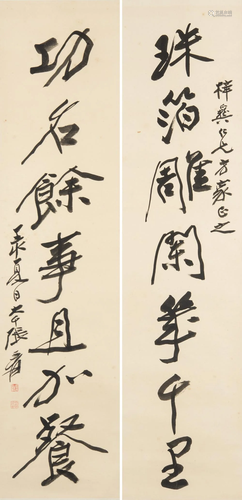 珠箔雕闌幾千里
梓興仁兄方家正之
功名餘事且加餐
丁亥夏日大千張爰